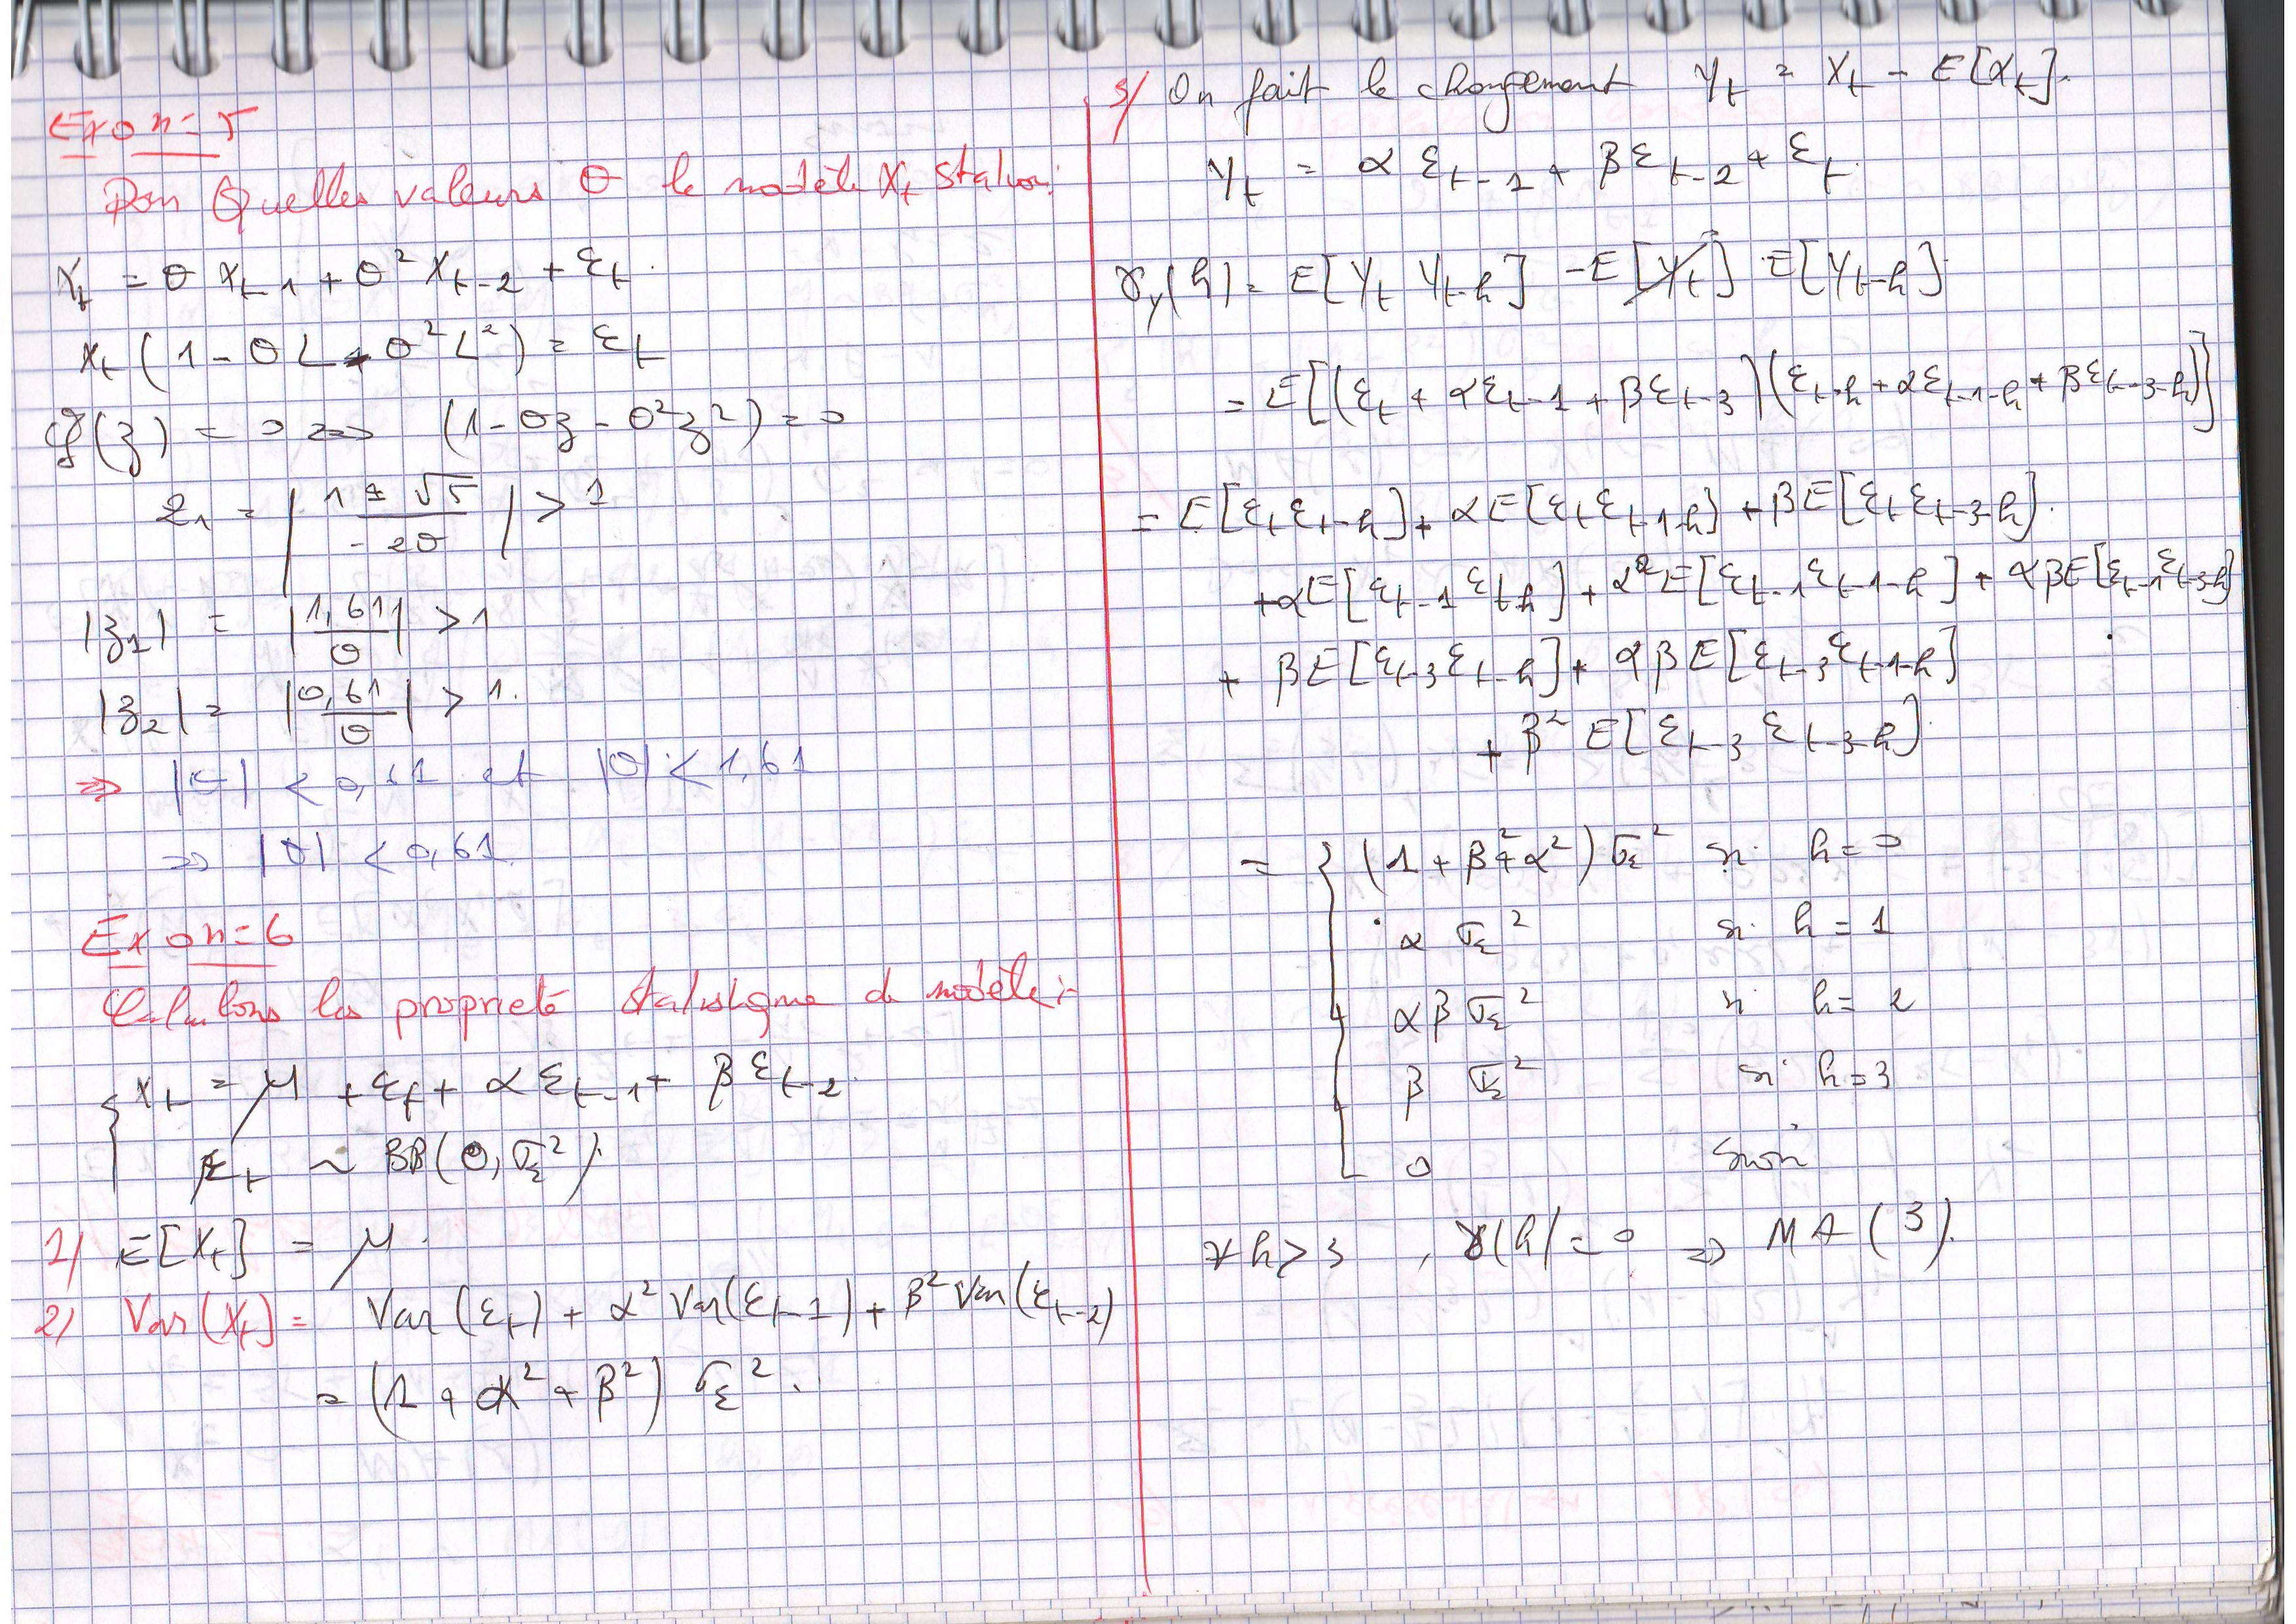 Exo n=5
Pour Quelles valeurs θ le modèle Xt station:
Xt = θ Xt-1 + θ² Xt-2 + εt.
xt (1 - θL - θ²L²) = εt
φ(z) = 0 => (1 - θz - θ²z²) = 0
z1 = | (1 ± √5) / (-2θ) | > 1
|z1| = |1,61 / θ| > 1
|z2| = |0,61 / θ| > 1.
=> |θ| < 0,61 et |θ| < 1,61
=> |θ| < 0,61.
Exo n=6
Calculons les propriété statistique de modèle :
{ Xt = μ + εt + α εt-1 + β εt-2.
εt ~ BB(0, σε²).
1/ E[Xt] = μ.
2/ Var(Xt) = Var(εt) + α² Var(εt-1) + β² Var(εt-2)
= (1 + α² + β²) σε².
3/ On fait le changement Yt = Xt - E[Xt].
Yt = α εt-1 + β εt-2 + εt.
γy(h) = E[Yt Yt-h] - E[Yt] E[Yt-h]
= E[(εt + αεt-1 + βεt-3)(εt-h + αεt-1-h + βεt-3-h)]
= E[εt εt-h] + αE[εt εt-1-h] + βE[εt εt-3-h].
+ αE[εt-1 εt-h] + α²E[εt-1 εt-1-h] + αβE[εt-1 εt-3-h]
+ βE[εt-3 εt-h] + αβE[εt-3 εt-1-h]
+ β² E[εt-3 εt-3-h]
= { (1 + β² + α²) σε² si h = 0
α σε² si h = 1
αβ σε² si h = 2
β σε² si h = 3
0 sinon
∀ h > 3 , γ(h) = 0 => MA(3).